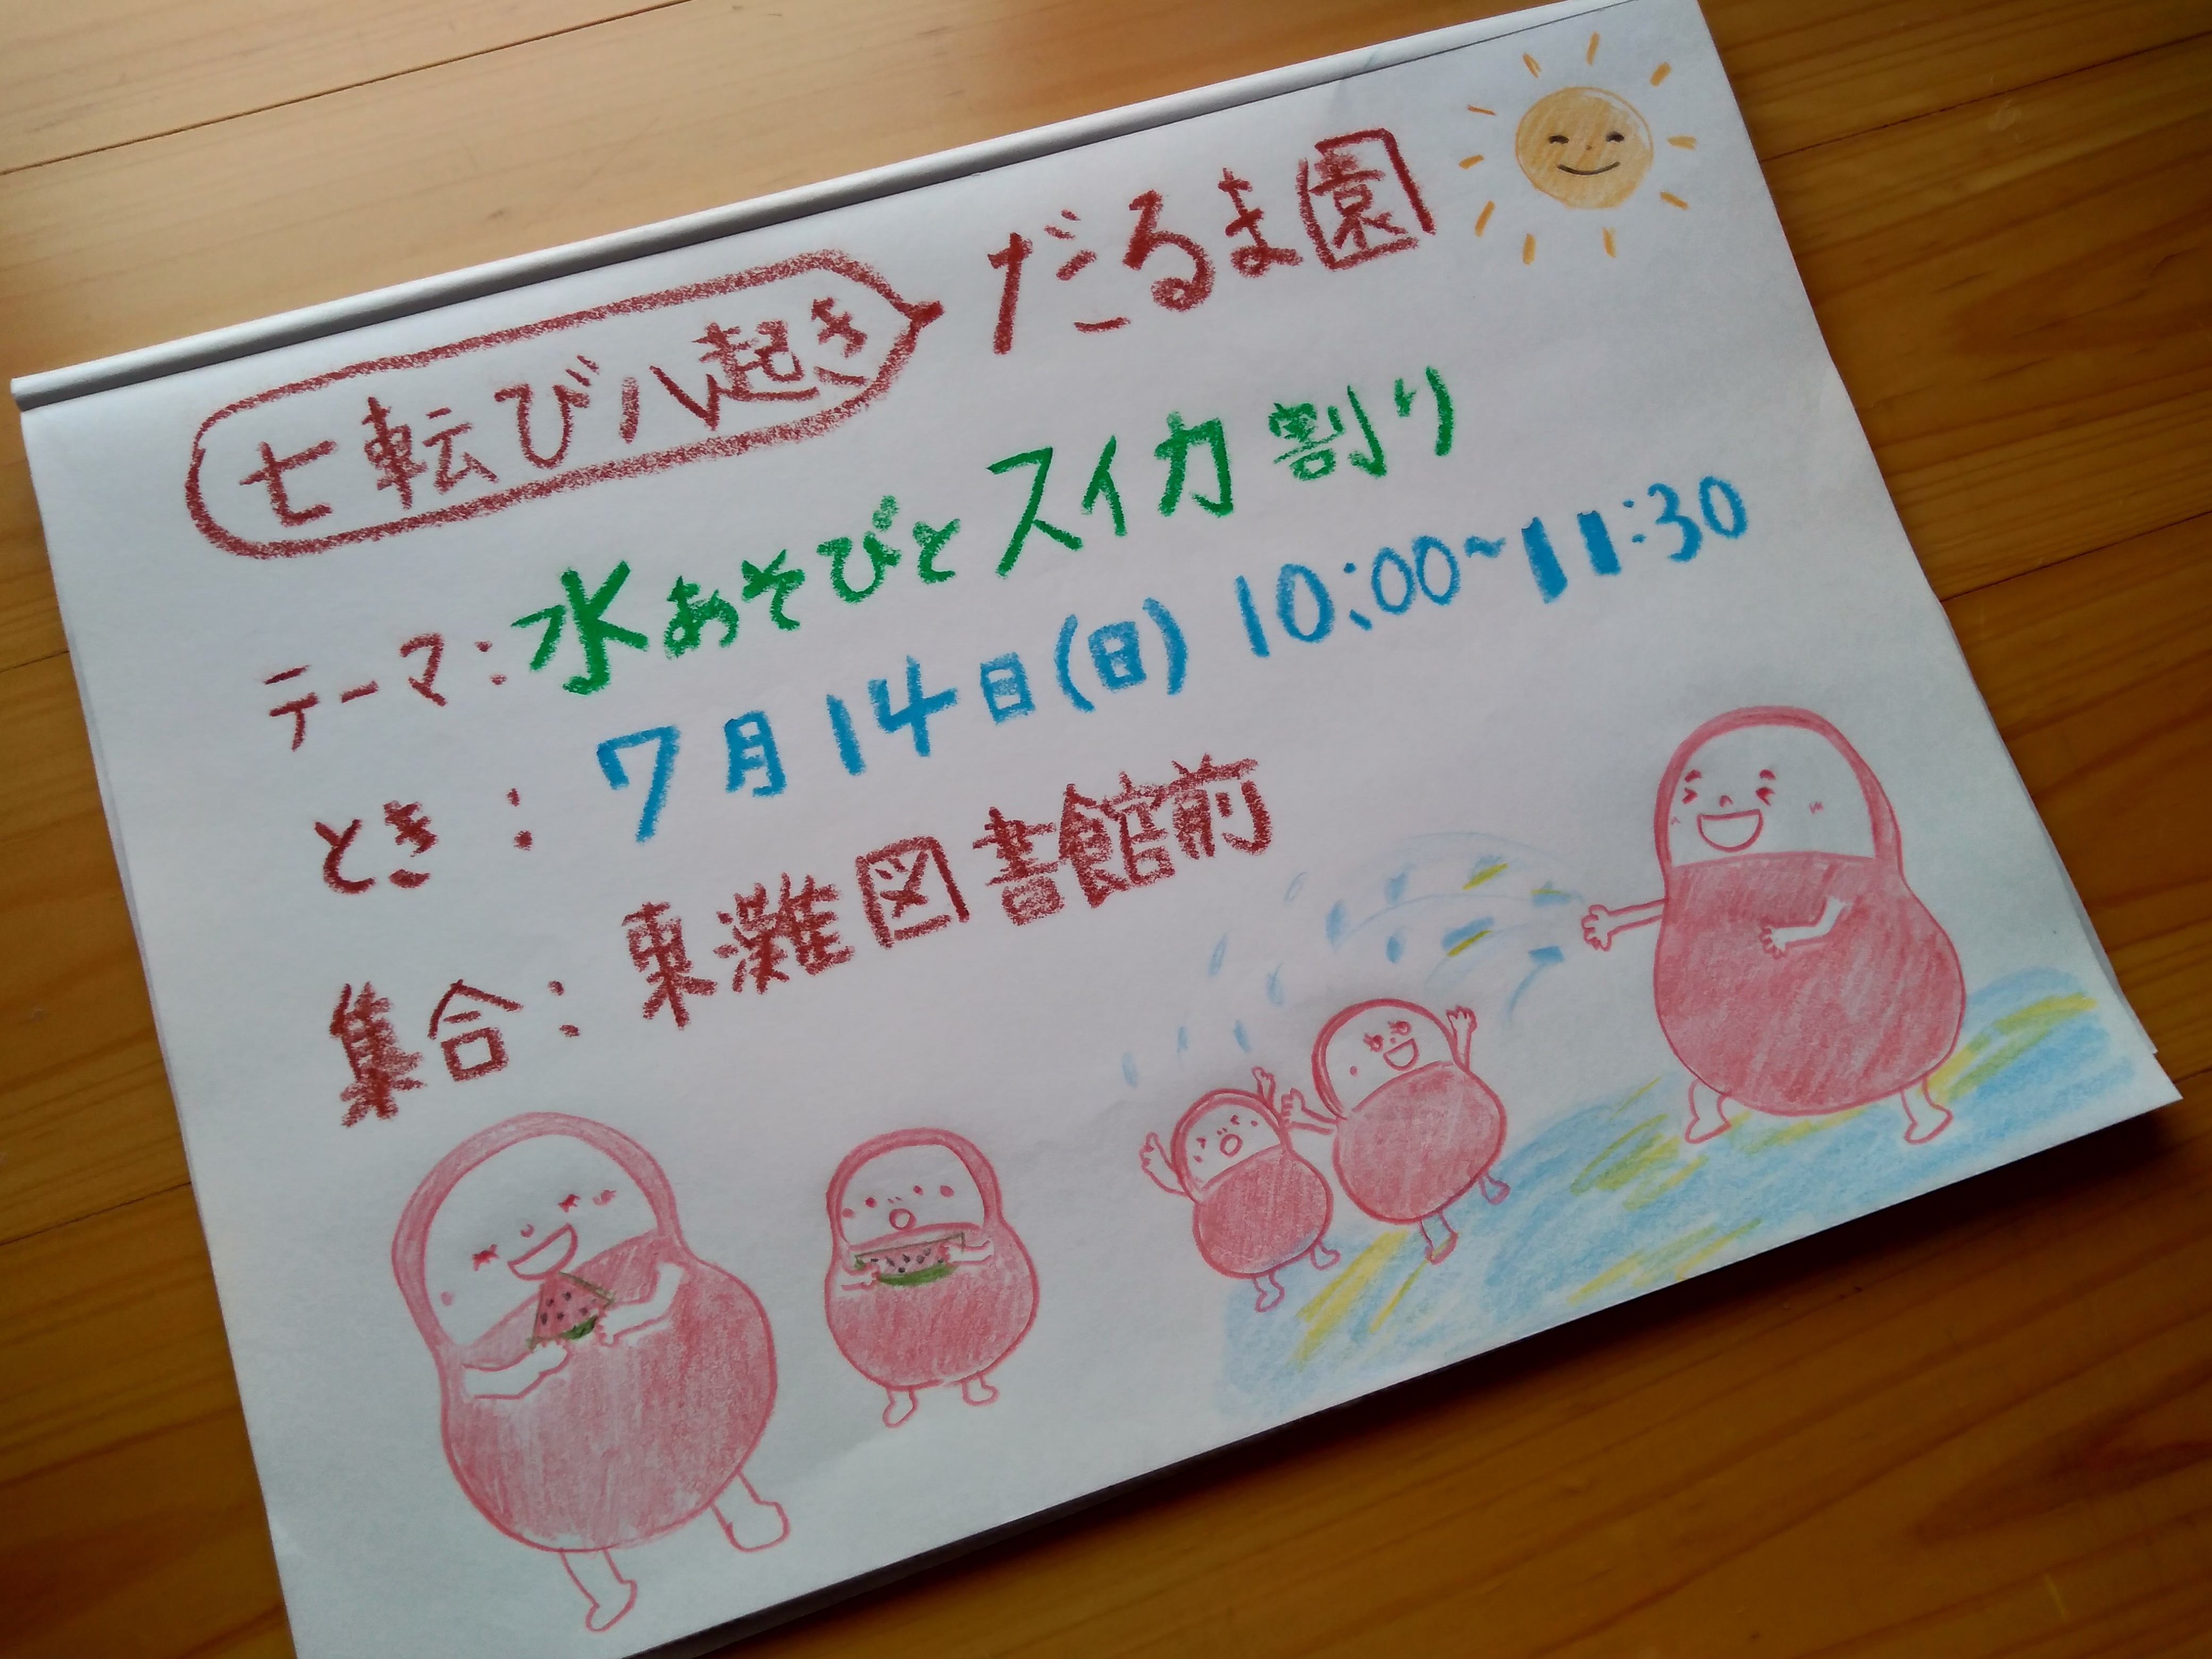 七転び八起き だるま園
テーマ：水あそびとスイカ割り
とき：7月14日(日) 10:00~11:30
集合：東灘図書館前